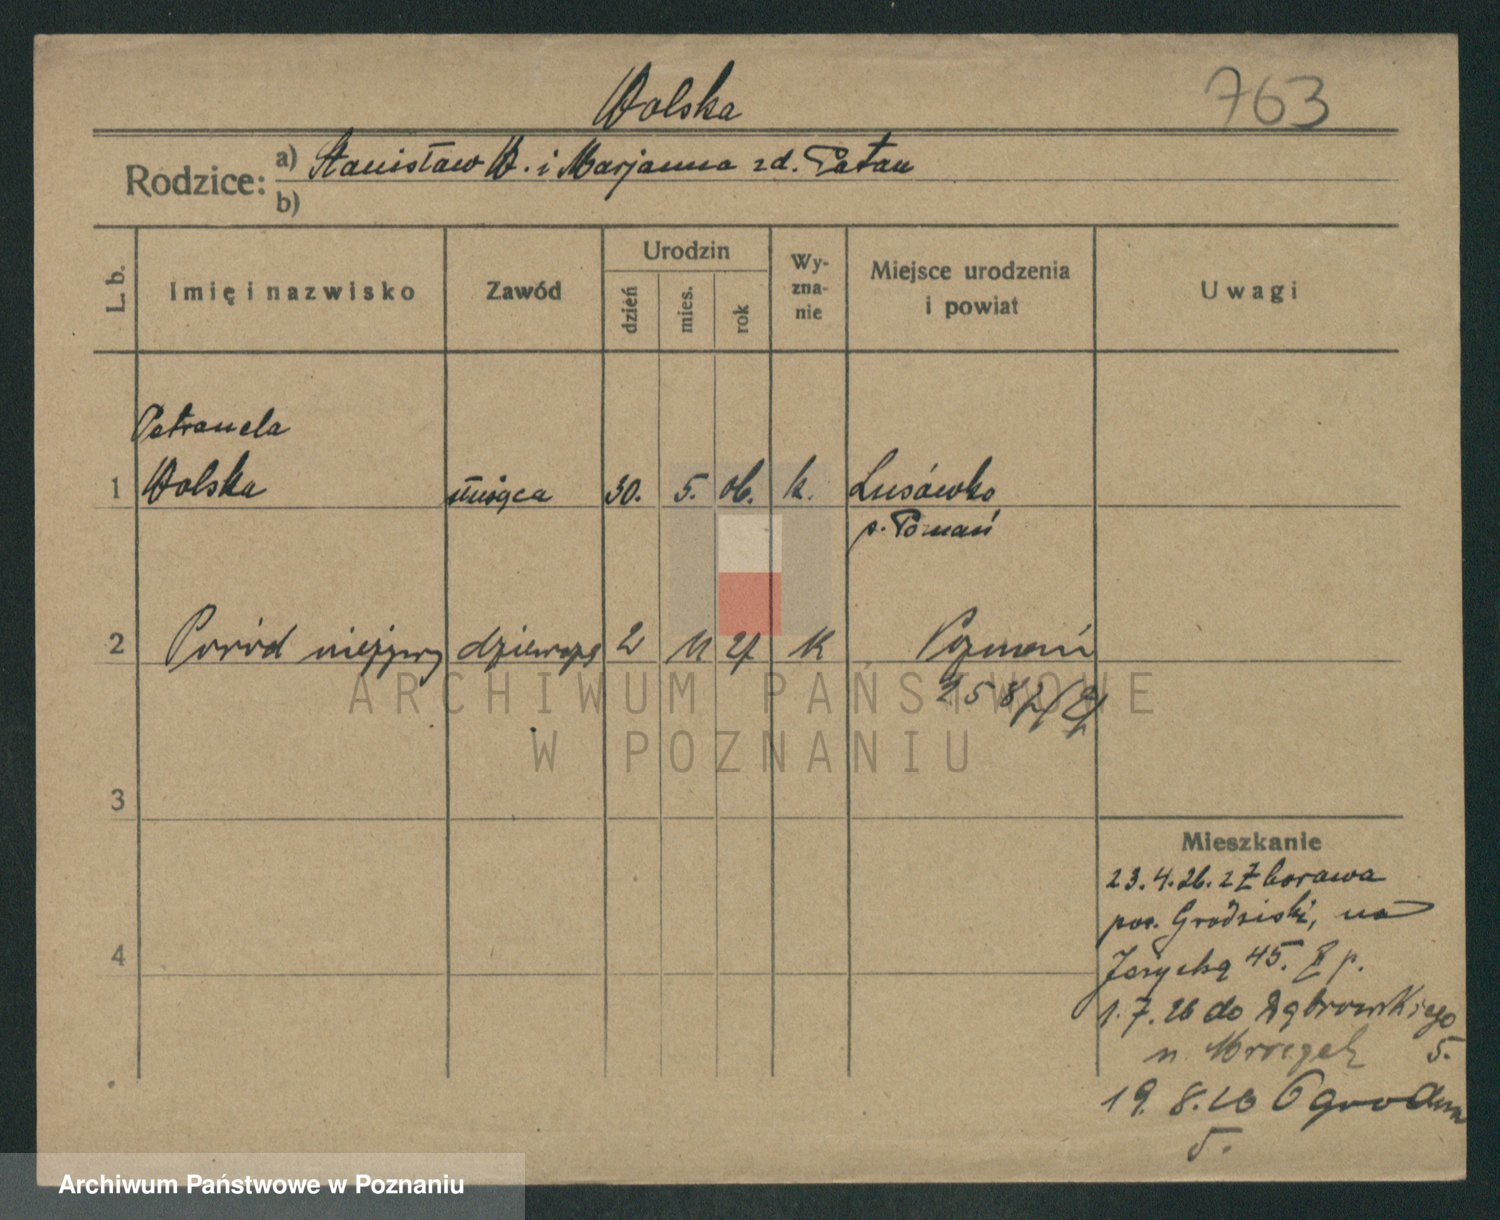 Wolska
763
Rodzice: a) Stanisław W. i Marjanna zd. Patan
b)
L. b.
Imię i nazwisko
Zawód
Urodzin
dzień
mies.
rok
Wy-
zna-
nie
Miejsce urodzenia
i powiat
Uwagi
Petronela
1 Wolska służąca 30. 5. 06. k. Lusówko
p. Poznań
2 Poród nieżywy dziewczę 2 11 27 k Poznań
3
Mieszkanie
23.4.26. z Zborowa
pow. Grodziski, na
4
Jeżycką 45. II p.
1.7.26 do Dąbrowskiego
5.
19.8.26 Ogrodowa
5.
ARCHIWUM PAŃSTWOWE
W POZNANIU
Archiwum Państwowe w Poznaniu